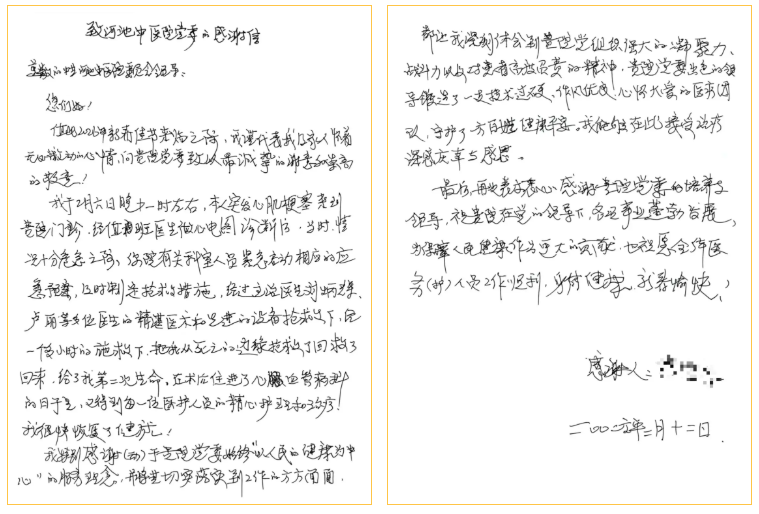 致河池市中医医院党委的感谢信
尊敬的河池市中医医院领导:
您们好!
值此2026年新春佳节来临之际,我谨代表我及家人怀着
无比激动的心情,向贵医院党委致以最诚挚的谢意和崇高
的敬意!
我于2月六日晚十一时左右,本人突发心肌梗塞来到
贵院门诊,经值班医生做心电图诊断后,当时,情
况十分危急之际,您院有关科室人员紧急启动相应的应
急预案,及时制定抢救的措施,经过主治医生
卢 等多位医生的精湛医术和先进的设备抢救下,
一个多小时的施救下,把我从死亡的边缘抢救了回
回来,给了我第二次生命,在术后住进了心脏血管病科
的日子里,又得到每一位医护人员的精心护理和治疗,
我很快恢复了健康!
我特别感谢 于贵医院党委始终"以人民的健康为中
心"的服务理念,并将其切实落实到工作的方方面面,
都让我深刻体会到贵医院党组织强大的凝聚力、
战斗力以及对患者高度负责的精神,贵医院党委出色的领
导锻造了一支技术过硬、作风优良、心怀大爱的医疗团
队,守护了一方百姓健康平安,我们能在此接受治疗
深感庆幸与感恩。
最后,再次衷心感谢贵医院党委的培养及
领导,祝贵院在党的领导下,各项事业蓬勃发展,
为保障人民健康作出更大的贡献,也祝愿全体医
务(护)人员工作顺利,身体健康,新春愉快!
感谢人:
二〇〇二六年二月十二日